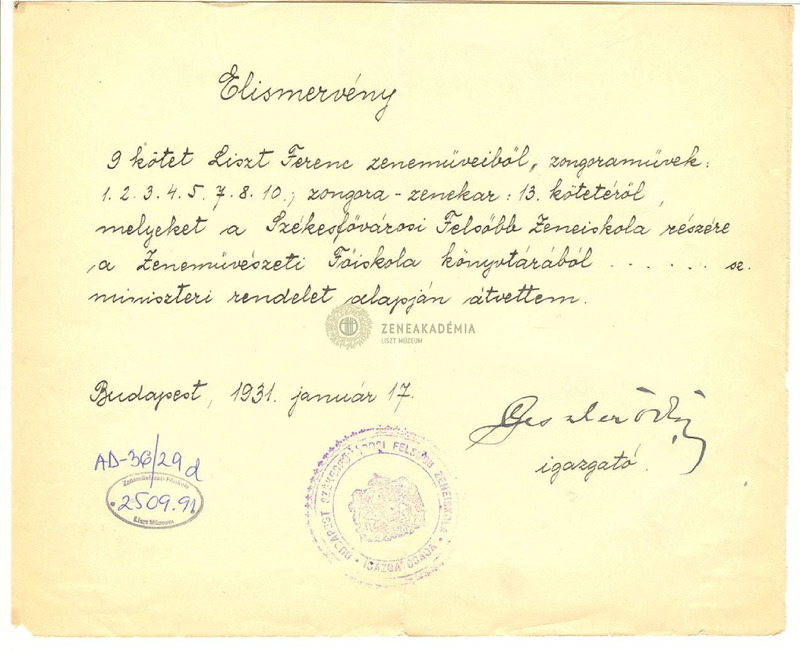 Elismervény
9 kötet Liszt Ferenc zeneműveiből, zongoraművek:
1. 2. 3. 4. 5. 7. 8. 10.; zongora-zenekar: 13. kötetéről,
melyeket a Székesfővárosi Felsőbb Zeneiskola részére
a Zeneművészeti Főiskola könyvtárából . . . . . . sz.
miniszteri rendelet alapján átvettem.
ZENEAKADÉMIA
LISZT MÚZEUM
Budapest, 1931. január 17.
Geszler Ödön
igazgató.
AD-36/29d
Zeneművészeti Főiskola
2509.91
Liszt Múzeum
BUDAPEST SZÉKESFŐVÁROSI FELSŐBB ZENEISKOLA
IGAZGATÓSÁGA